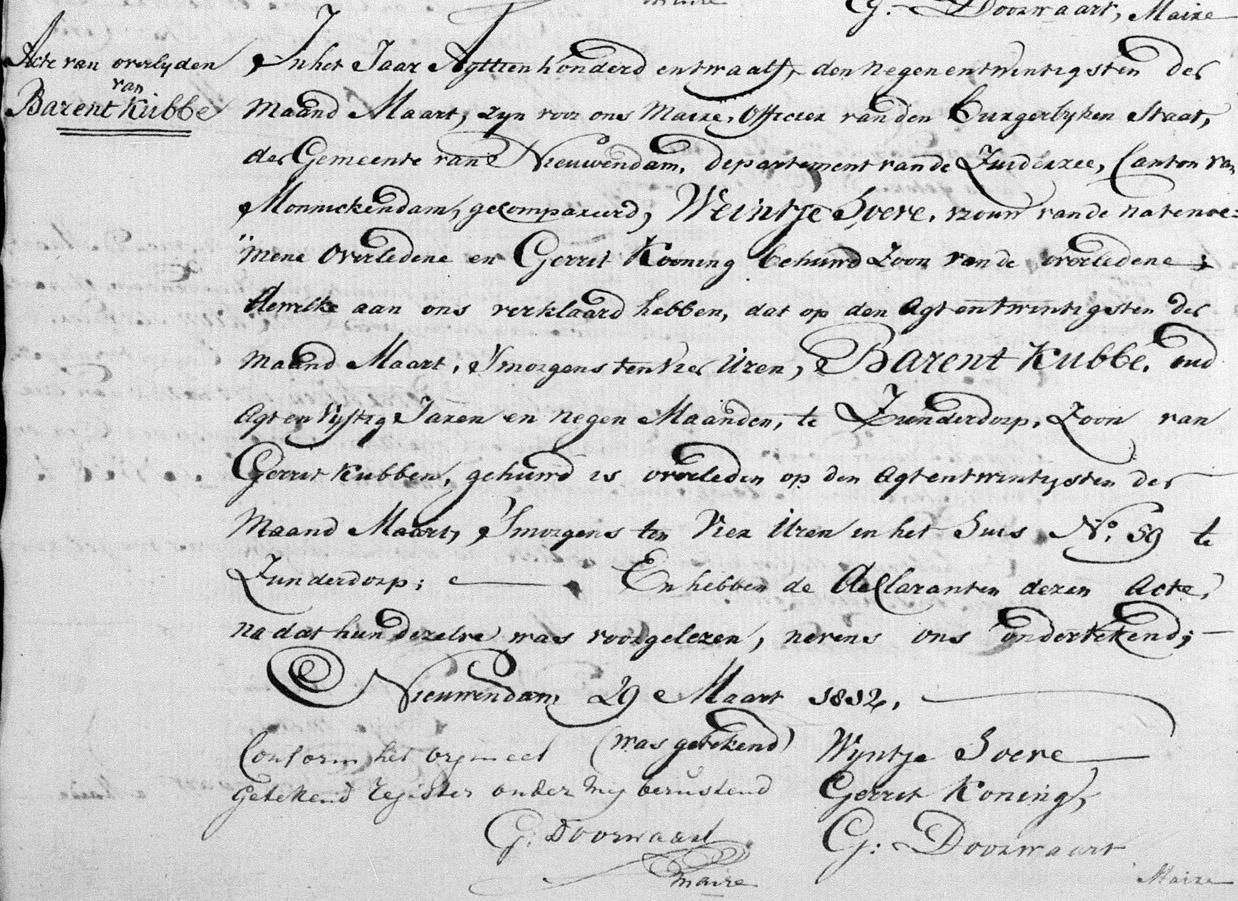 G. Doorwaart, Maire
Acte van overlyden
van
Barent Kubbe
In het Jaar Agttien honderd en twaalf, den negen en twintigsten der
maand Maart, zyn voor ons Maire, Officier van den Burgerlyken Staat,
der Gemeente van Nieuwendam, departement van de Zuiderzee, Canton van
Monnickendam, gecompareerd, Weintje Soere, vrouw van de natenoe=
"mene Overledene en Gerrit Kooning behuwd Zoon van de overledene;
dewelke aan ons verklaard hebben, dat op den Agt en twintigsten der
maand Maart, 's morgens ten vier Uren, Barent Kubbe, oud
Agt en Vyftig Jaren en negen Maanden, te Zunderdorp, Zoon van
Gerrit Kubben, gehuwd is overleden op den Agt en twintigsten der
Maand Maart, 's morgens ten Vier Uren in het Huis No. 59 te
Zunderdorp; En hebben de declaranten dezen Acte,
na dat hun dezelve was voorgelezen, nevens ons ondertekend;
Nieuwendam, 29 Maart 1812,
Conform het origineel (was getekend) Wyntje Soere
getekend register onder my berustend Gerrit Koning,
G. Doorwaart G: Doorwaart
maire Maire